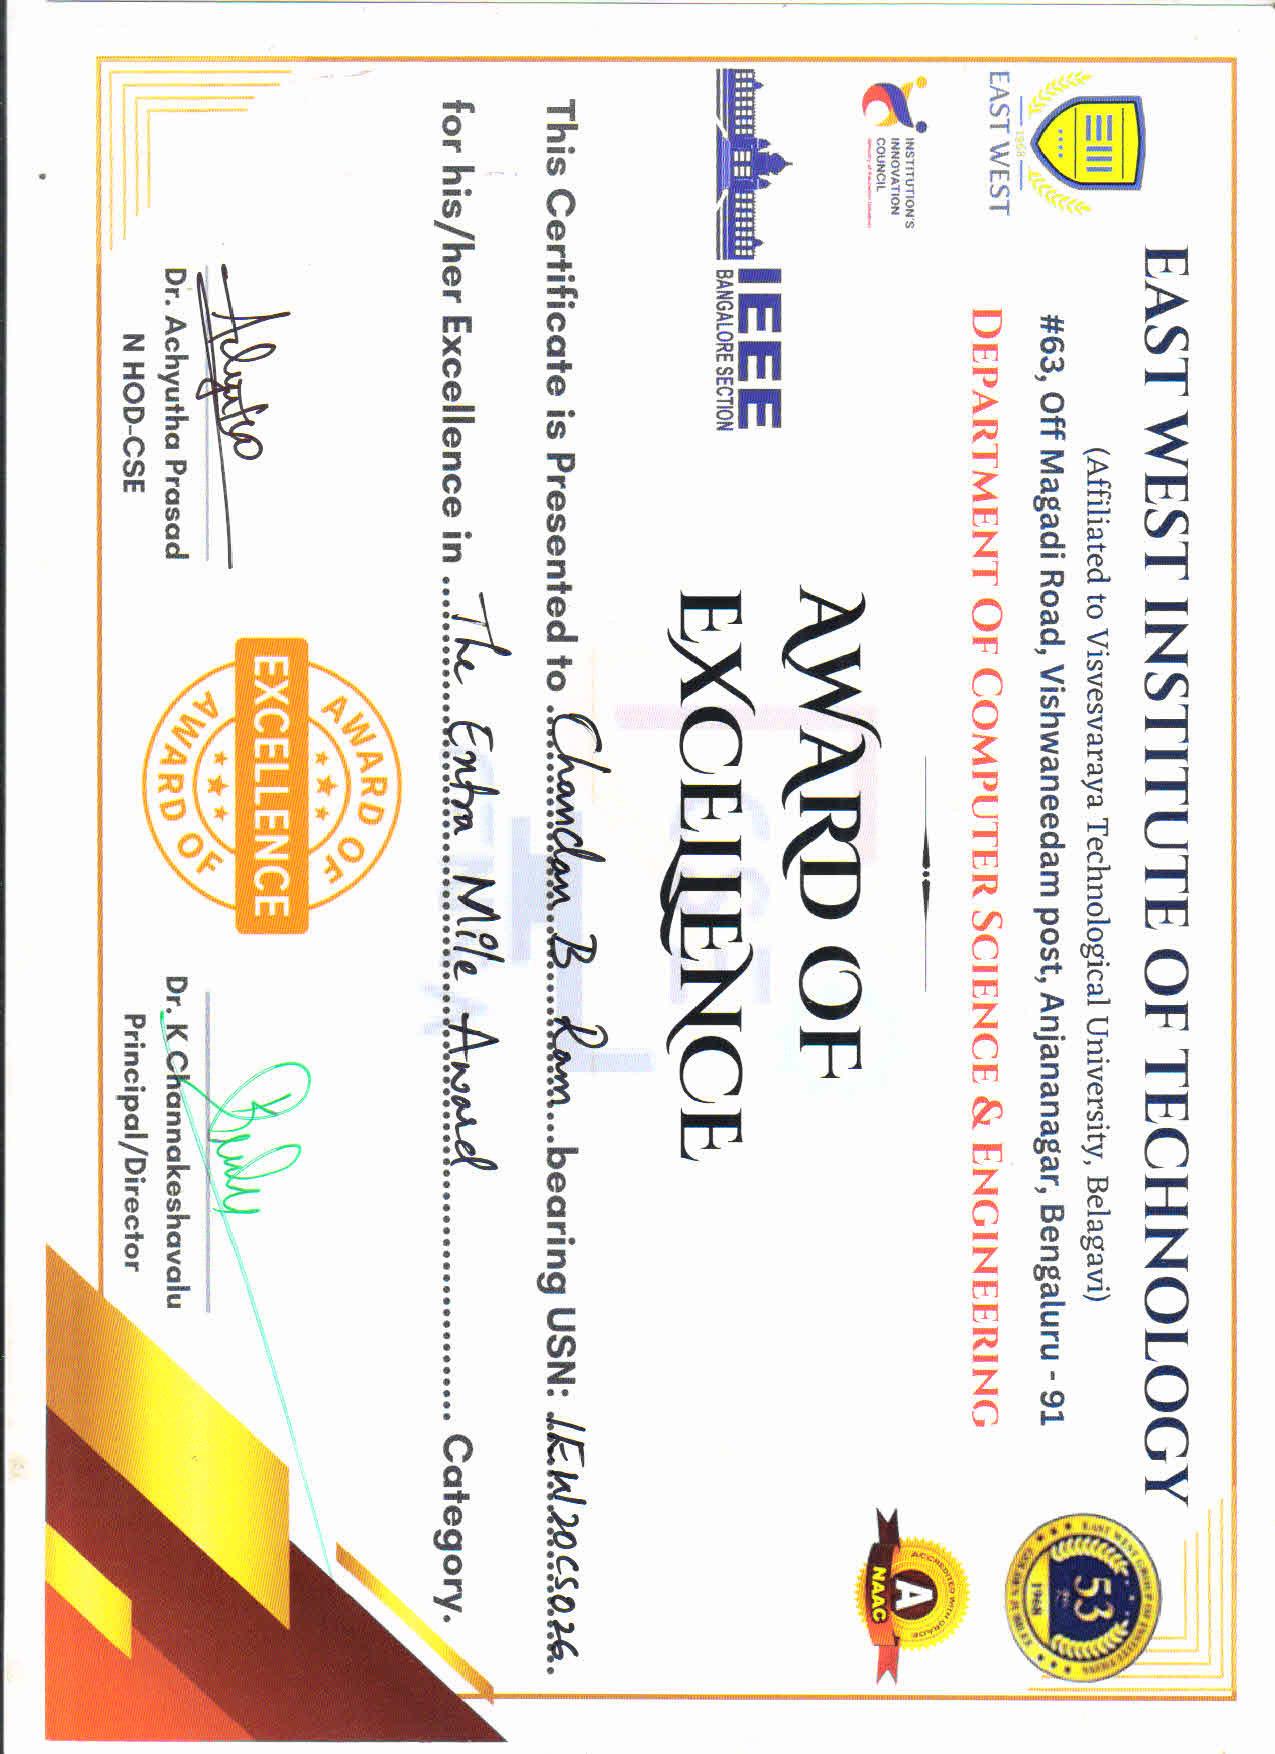 EAST WEST INSTITUTE OF TECHNOLOGY
(Affiliated to Visvesvaraya Technological University, Belagavi)
#63, Off Magadi Road, Vishwaneedam post, Anjananagar, Bengaluru - 91
DEPARTMENT OF COMPUTER SCIENCE & ENGINEERING
1968
EAST WEST
EAST WEST GROUP OF INSTITUTIONS
53
1968
GOLDEN JUBILEE
INSTITUTION'S
INNOVATION
COUNCIL
ACCREDITED WITH GRADE
A
NAAC
IEEE
BANGALORE SECTION
AWARD OF
EXCELLENCE
CSE
This Certificate is Presented to Chandan B Ram bearing USN: 1EW20CS026.
for his/her Excellence in The Extra Mile Award Category.
AWARD OF
EXCELLENCE
AWARD OF
Achyutha
Dr. Achyutha Prasad
N HOD-CSE
Dr. K Channakeshavalu
Principal/Director